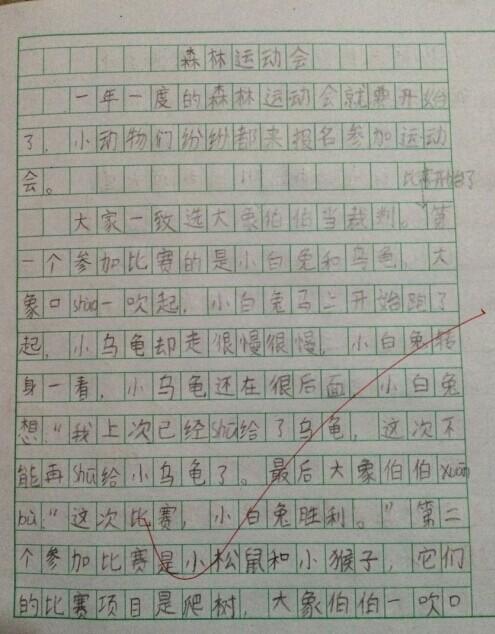 森林运动会
一年一度的森林运动会就要开始
了，小动物们纷纷都来报名参加运动
会。
比赛开始了
大家一致选大象伯伯当裁判。第
一个参加比赛的是小白兔和乌龟，大
象口shào一吹起，小白兔马上开始跑了
起，小乌龟却走很慢很慢，小白兔转
身一看，小乌龟还在很后面，小白兔
想“我上次已经shū给了乌龟，这次不
能再shū给小乌龟了。最后大象伯伯xuān
bù“这次比赛，小白兔胜利。”第二
个参加比赛是小松鼠和小猴子，它们
的比赛项目是爬树，大象伯伯一吹口